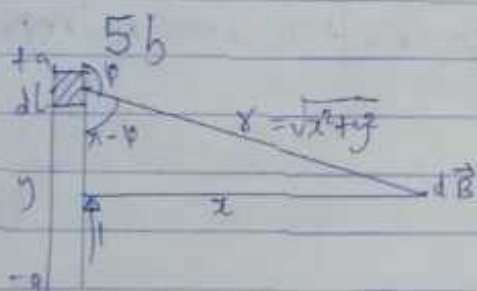 5b
+a
φ
dl
π-φ
r = √x²+y²
y
x
dB⃗
I
-a